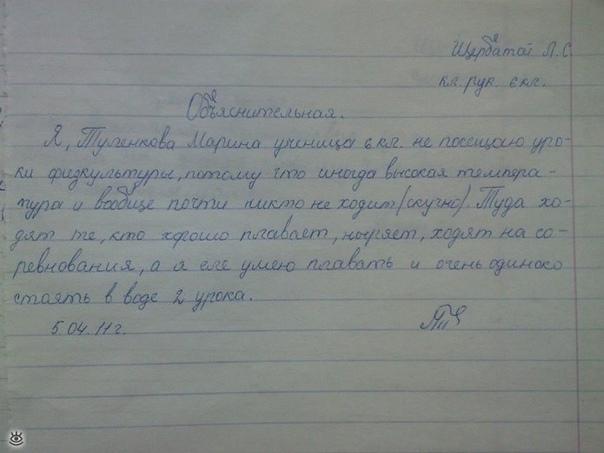 Щербатой Л.С.
кл. рук. 6 кл.
Объяснительная.
Я, Тупенкова Марина ученица 6 кл. не посещаю уро-
ки физкультуры, потому что иногда высокая темпера-
тура и вообще почти никто не ходит (скучно). Туда хо-
дят те, кто хорошо плавает, ныряет, ходят на со-
ревнования, а я еле умею плавать и очень одиноко
стоять в воде 2 урока.
5.04.11г.